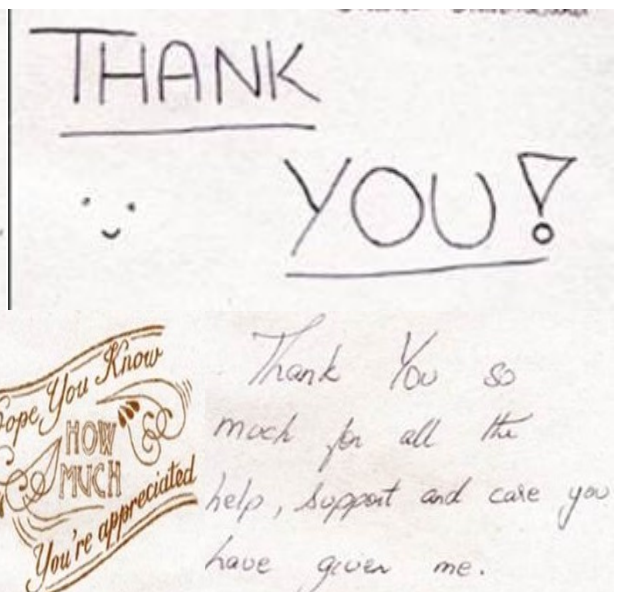 THANK
YOU!
Hope You Know
HOW
MUCH
You're appreciated
Thank You so
much for all the
help, support and care you
have given me.